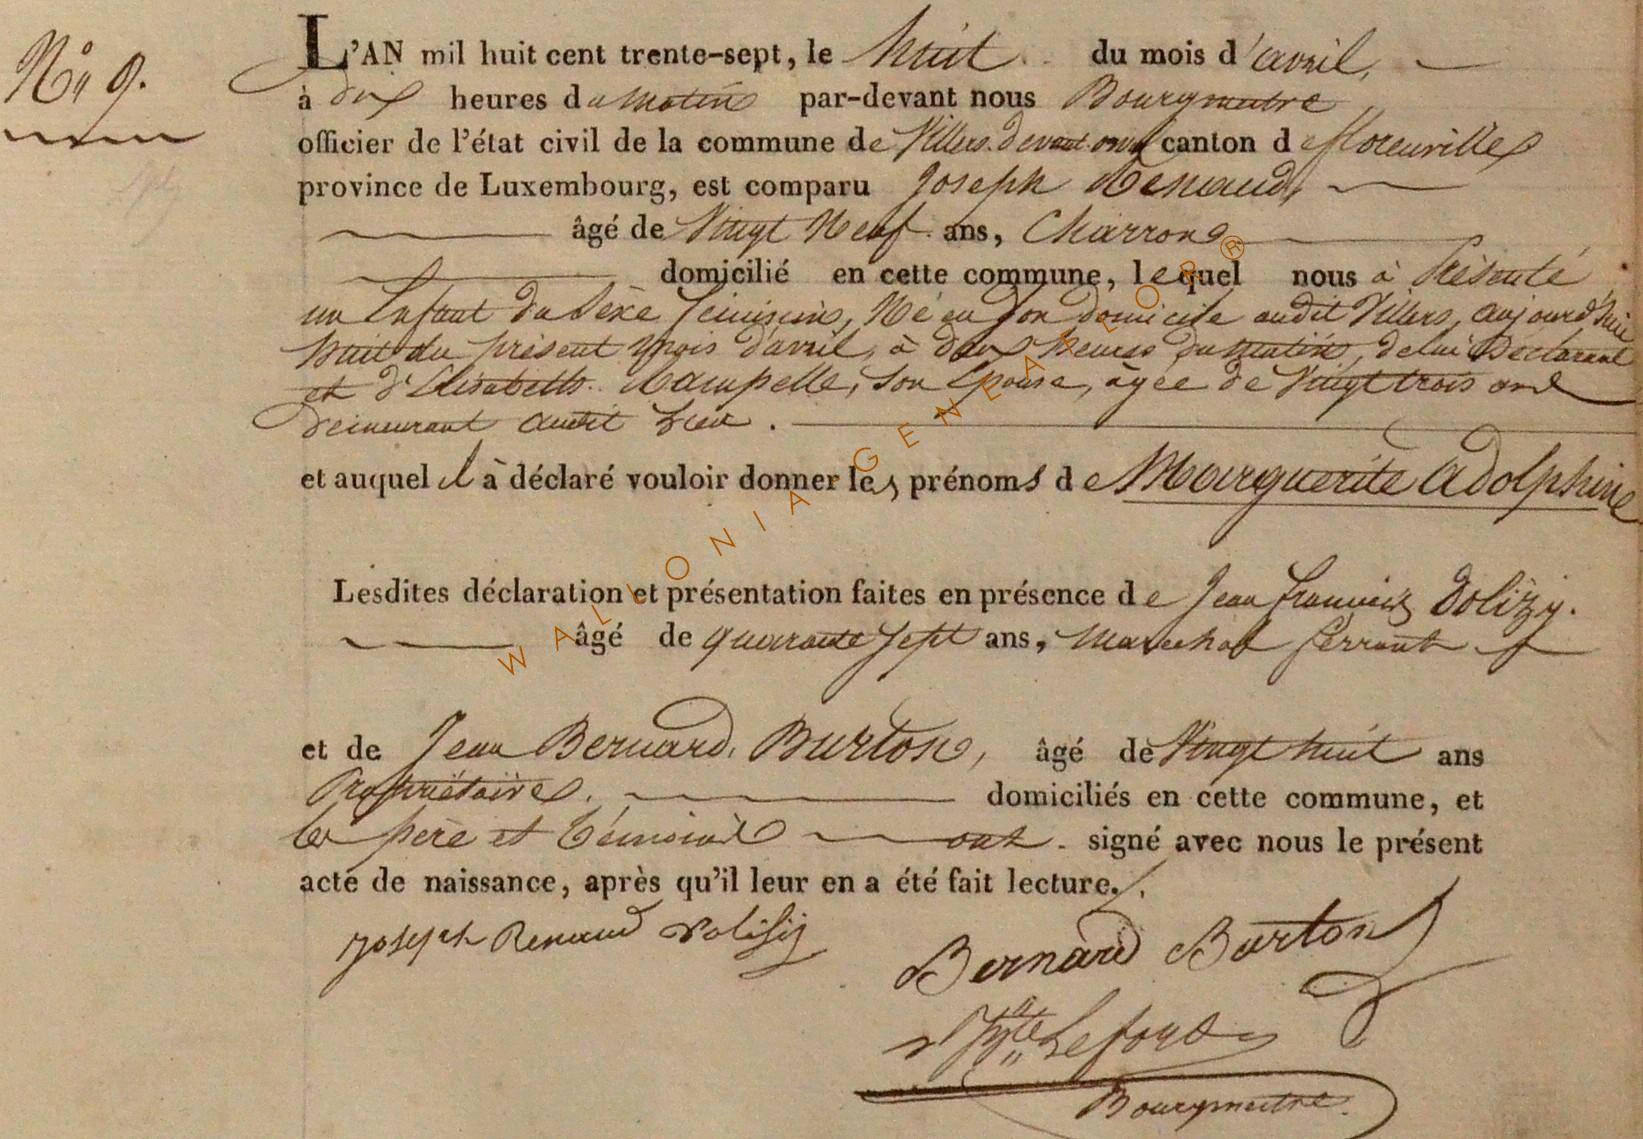 N° 9.
L'AN mil huit cent trente-sept, le huit du mois d'avril,
à dix heures du matin par-devant nous Bourgmestre
officier de l'état civil de la commune de Villers devant orval canton de florenville
province de Luxembourg, est comparu Joseph Renaud,
âgé de Vingt Neuf ans, Charron
domicilié en cette commune, lequel nous à présenté
un Enfant du Sèxe féminin, Né en son domicile audit Villers, aujourd'hui
huit du présent mois d'avril, à deux heures du matin, de lui Déclarant
et d'Elisabeth Campelle, son Epouse, âgée de Vingt trois ans
demeurant audit lieu.
et auquel il à déclaré vouloir donner les prénoms de Marguerite Adolphine
Lesdites déclaration et présentation faites en présence de Jean françois Dolizy.
âgé de quarante sept ans, Marechal ferrant
et de Jean Bernard Burton, âgé de Vingt huit ans
Propriétaire. domiciliés en cette commune, et
les père et témoins ont signé avec nous le présent
acte de naissance, après qu'il leur en a été fait lecture.
Joseph Renaud Dolisy
Bernard Burton
Lefort
Bourgmestre.
WALLONIA GENEALOR ®